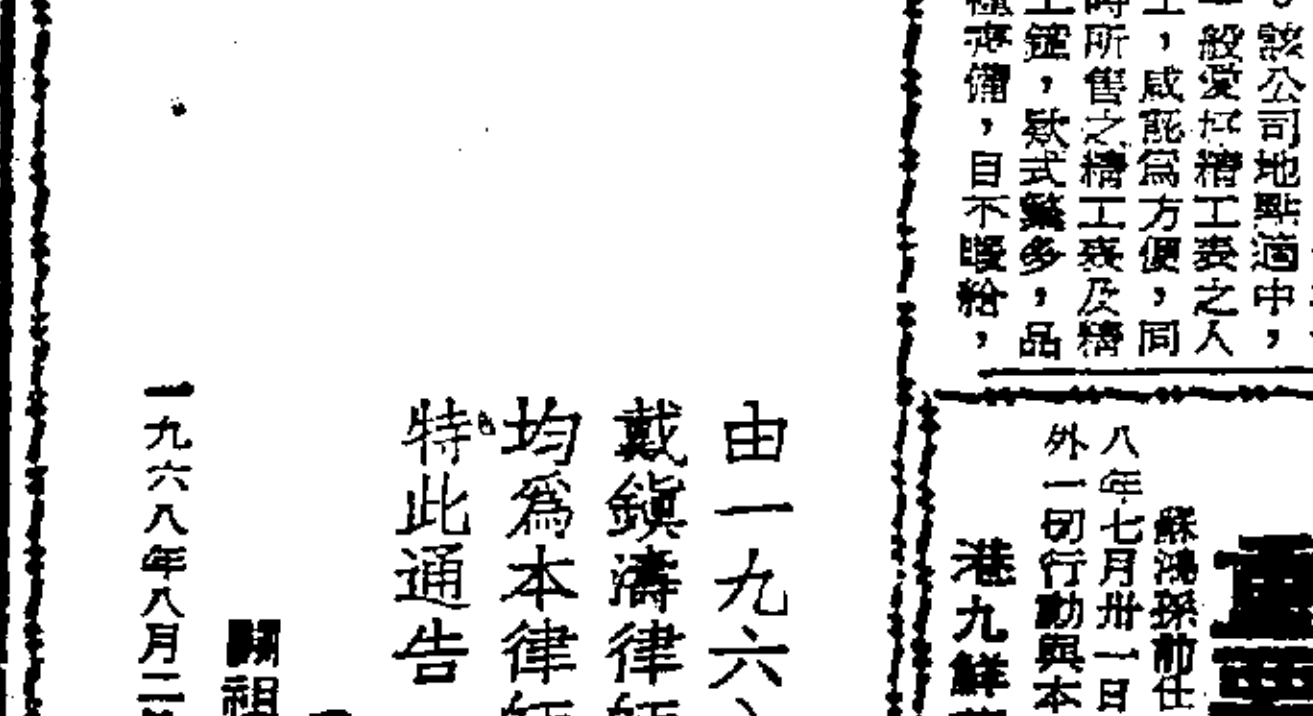 。該公司地點適中，
一般愛好精工表之人
士，咸認為方便，同
時所售之精工表及精
工鐘，款式繁多，品
種齊備，自不暇給，
重要
蘇鴻孫前任
八年七月卅一日
外一切行動與本
港九鮮
由一九六
戴鎮濤律師
均為本律師
特此通告
關祖
一九六八年八月二